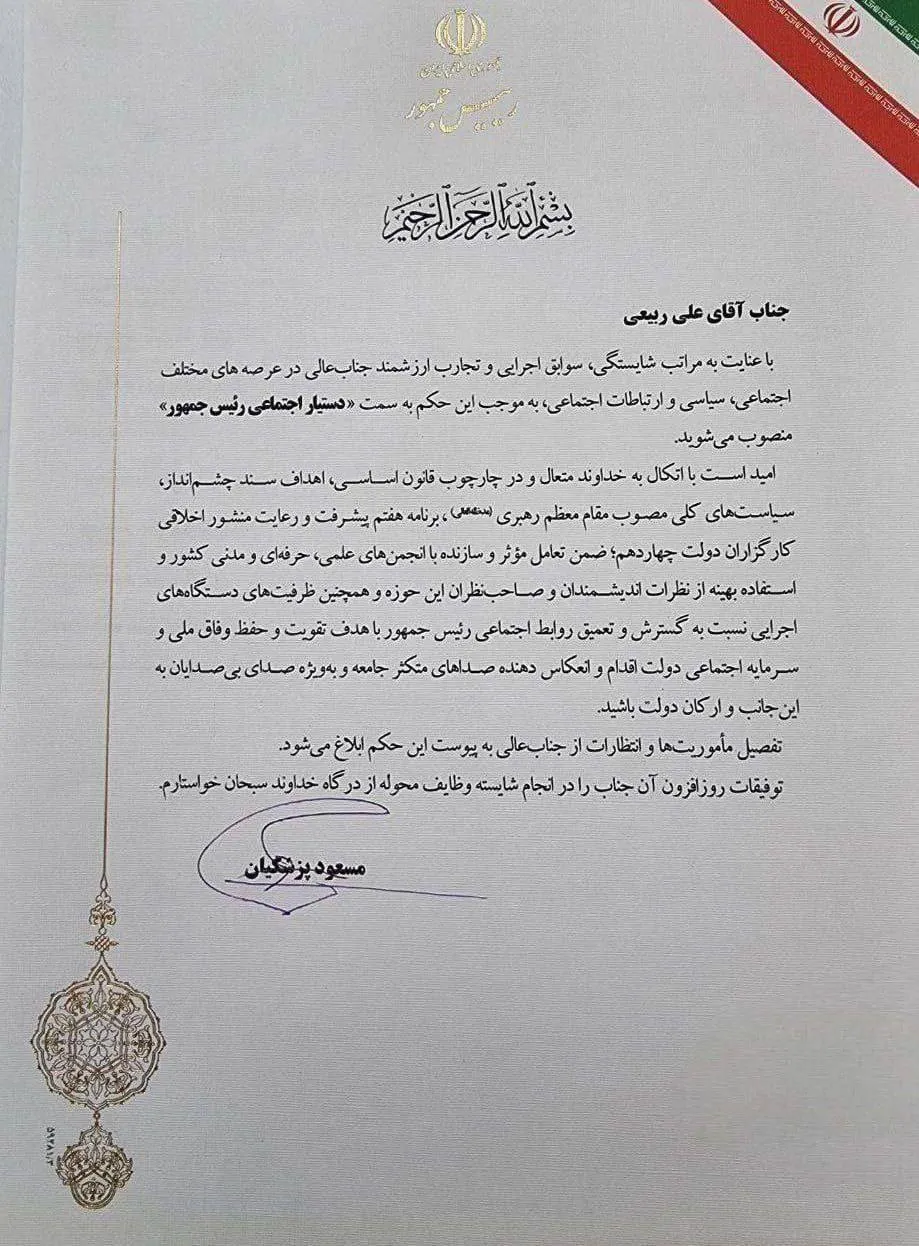 جمهوری اسلامی ایران
رییس جمهور
بسم الله الرحمن الرحیم
جناب آقای علی ربیعی
با عنایت به مراتب شایستگی، سوابق اجرایی و تجارب ارزشمند جناب‌عالی در عرصه های مختلف
اجتماعی، سیاسی و ارتباطات اجتماعی، به موجب این حکم به سمت «دستیار اجتماعی رئیس جمهور»
منصوب می‌شوید.
امید است با اتکال به خداوند متعال و در چارچوب قانون اساسی، اهداف سند چشم‌انداز،
سیاست‌های کلی مصوب مقام معظم رهبری (مدظله‌العالی)، برنامه هفتم پیشرفت و رعایت منشور اخلاقی
کارگزاران دولت چهاردهم؛ ضمن تعامل مؤثر و سازنده با انجمن‌های علمی، حرفه‌ای و مدنی کشور و
استفاده بهینه از نظرات اندیشمندان و صاحب‌نظران این حوزه و همچنین ظرفیت‌های دستگاه‌های
اجرایی نسبت به گسترش و تعمیق روابط اجتماعی رئیس جمهور با هدف تقویت و حفظ وفاق ملی و
سرمایه اجتماعی دولت اقدام و انعکاس دهنده صداهای متکثر جامعه و به‌ویژه صدای بی‌صدایان به
این‌جانب و ارکان دولت باشید.
تفصیل مأموریت‌ها و انتظارات از جناب‌عالی به پیوست این حکم ابلاغ می‌شود.
توفیقات روزافزون آن جناب را در انجام شایسته وظایف محوله از درگاه خداوند سبحان خواستارم.
مسعود پزشکیان